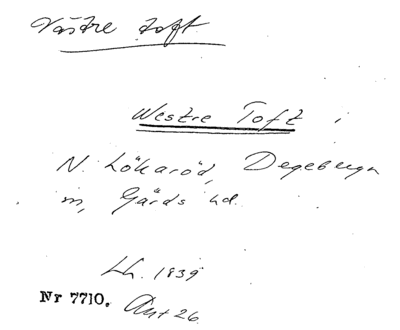 Västre toft
Westre Toft i
N. Lökaröd, Degeberga
m, Gärds hd.
Lh. 1839
Nr 7710. Akt 26